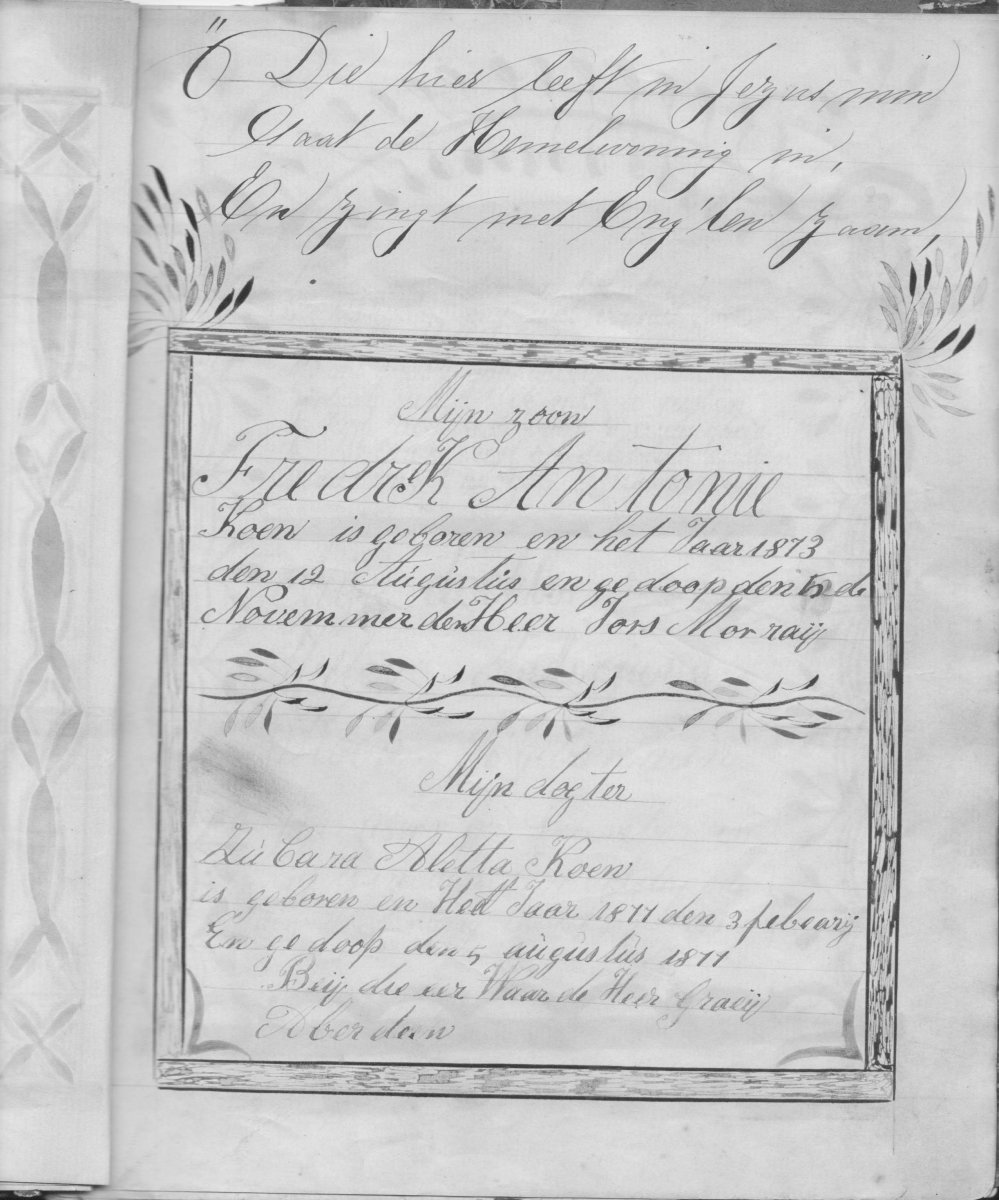 "Die hier leeft in Jezus min
Gaat de Hemelwonnig in,
En zingt met Eng'len zaam,
Mijn zoon
Fredrek Antonie
Koen is geboren en het Jaar 1873
den 12 Augustus en ge doop den de
Novemmer den Heer Jors Morraij
Mijn dogter
Aletta Koen
is geboren en Het Jaar 1877 den 3 febearij
En ge doop den 5 augustus 1877
Beij die eer Waar de Heer Graeij
Aberdeen